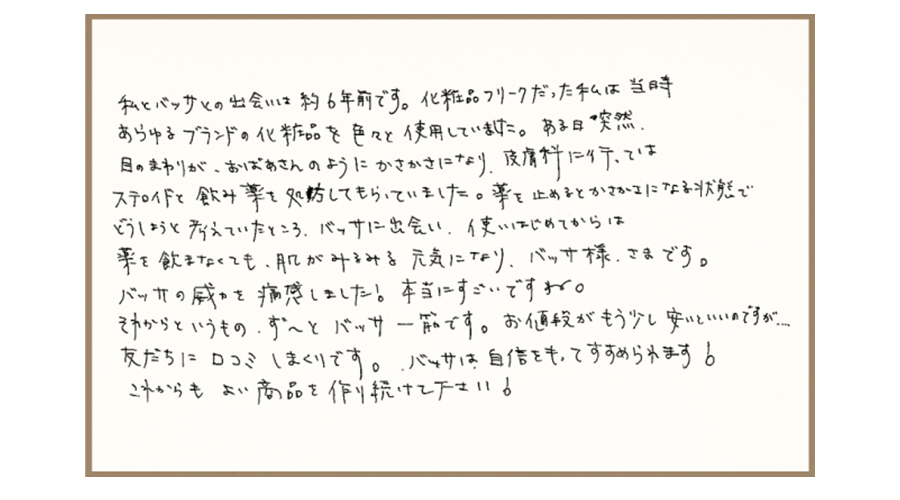 私とバッサとの出会いは約6年前です。化粧品フリークだった私は当時
あらゆるブランドの化粧品を色々と使用していました。ある日突然、
目のまわりが、おばあさんのようにかさかさになり、皮膚科に行っては
ステロイドと飲み薬を処方してもらっていました。薬を止めるとかさかさになる状態で
どうしようと考えていたところ、バッサに出会い、使いはじめてからは
薬を飲まなくても、肌がみるみる元気になり、バッサ様、さまです。
バッサの威力を痛感しました!本当にすごいですね。
それからというもの、ず〜とバッサ一筋です。お値段がもう少し安いといいのですが...
友だちに口コミしまくりです。バッサは、自信をもってすすめられます!
これからもよい商品を作り続けて下さい!